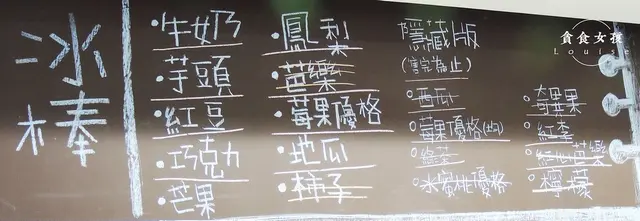 冰棒
·牛奶
·芋頭
·紅豆
·巧克力
·芒果
·鳳梨
·芭樂
·莓果優格
·地瓜
·柿子
隱藏版
(售完為止)
·西瓜
·莓果優格
·綠茶
·水蜜桃優格
·奇異果
·紅李
·紅心芭樂
·檸檬
貪食女孩
Louise